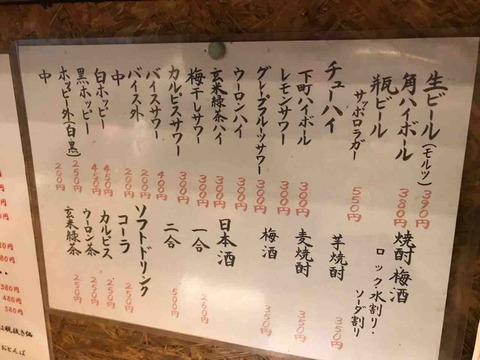 生ビール(モルツ) 390円
角ハイボール 380円
瓶ビール
サッポロラガー 550
チューハイ
下町ハイボール 300円
レモンサワー 300円
グレープフルーツサワー 300円
ウーロンハイ 300円
玄米緑茶ハイ 300円
梅干しサワー 300円
カルピスサワー 300円
バイスサワー 400円
バイス外
中
白ホッピー 450円
黒ホッピー 450円
ホッピー外(白黒)
中
焼酎・梅酒
ロック・水割り・ソーダ割り
芋焼酎 350
麦焼酎 350
梅酒 350
日本酒
一合
二合 500
ソフトドリンク
コーラ 250
カルピス 250
ウーロン茶 250
玄米緑茶 250